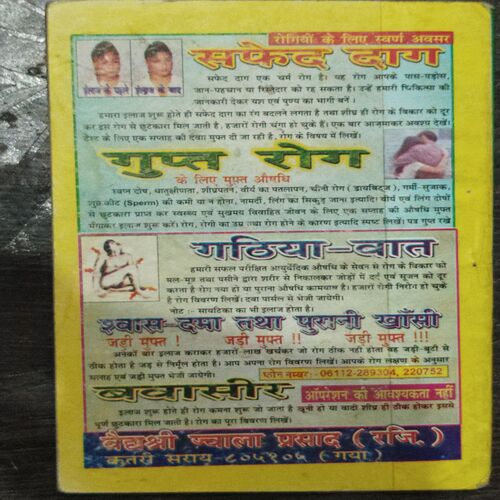 रोगियों के लिए स्वर्ण अवसर
सफेद दाग
इलाज के पहले इलाज के बाद
सफेद दाग एक चर्म रोग है। यह रोग आपके पास-पड़ोस,
जान-पहचान या रिस्तेदार को रह सकता है। उन्हें हमारी चिकित्सा की
जानकारी देकर यश एवं पुण्य का भागी बनें।
हमारा इलाज शुरू होते ही सफेद दाग का रंग बदलने लगता है तथा शीघ्र ही रोग के विकार को दूर
कर इस रोग से छुटकारा मिल जाती है, हजारों रोगी चंगा हो चुके हैं। एक बार आजमाकर अवश्य देखें।
टेस्ट के लिए एक सप्ताह की दवा मुफ्त दी जा रही है, रोग के विषय में लिखें।
गुप्त रोग
के लिए मुफ्त औषधि
स्वप्न दोष, धातुक्षीणता, शीघ्रपतन, वीर्य का पतलापन, चीनी रोग (डायबिटज), गर्मी-सुजाक,
शुक्र कीट (Sperm) की कमी या न होना, नामर्दी, लिंग का सिकुड़ जाना। इत्यादि। वीर्य एवं लिंग दोषों
से छुटकारा प्राप्त कर स्वस्थ्य एवं सुखमय विवाहित जीवन के लिए एक सप्ताह की औषधि मुफ्त
मंगाकर इलाज शुरू करें। रोग, रोगी का उम्र तथा रोग होने के कारण इत्यादि स्पष्ट लिखें। पत्र गुप्त रखे
गठिया-वात
हमारी सफल परीक्षित आयुर्वेदिक औषधि के सेवन से रोग के विकार को
मल-मूत्र तथा पसीने द्वारा शरीर से निकालकर जोड़ों में दर्द एवं सूजन को दूर
करता है रोग नया हो या पुराना औषधि कामयाब है। हजारों रोगी निरोग हो चुके
है रोग विवरण लिखें। दवा पार्सल से भेजी जायेगी।
नोट :- सायटिका का भी इलाज होता है।
श्वास-दमा तथा पुरानी खाँसी
जड़ी मुफ्त ! जड़ी मुफ्त !! जड़ी मुफ्त !!!
अनेकों बार इलाज कराकर हजारों-लाख खर्चकर जो रोग ठीक नहीं होता वह जड़ी-बूटी से
ठीक होता है जड़ से निर्मूल होता है। आप अपना रोग विवरण लिखें। आपके रोग लक्षण के अनुसार
सलाह एवं जड़ी मुफ्त भेजी जायेगी। फोन नम्बर:-06112-289304, 220752
बवासीर ऑपरेशन की आवश्यकता नहीं
इलाज शुरू होते ही रोग कमना शुरू जो जाता है खूनी हो या वादी शीघ्र ही ठीक होकर इससे
पूर्ण छुटकारा मिल जाता है। रोग का पूरा विवरण लिखें।
वैद्यश्री ज्वाला प्रसाद (रजि.)
कतरी सराय-८०५१०५ (गया)